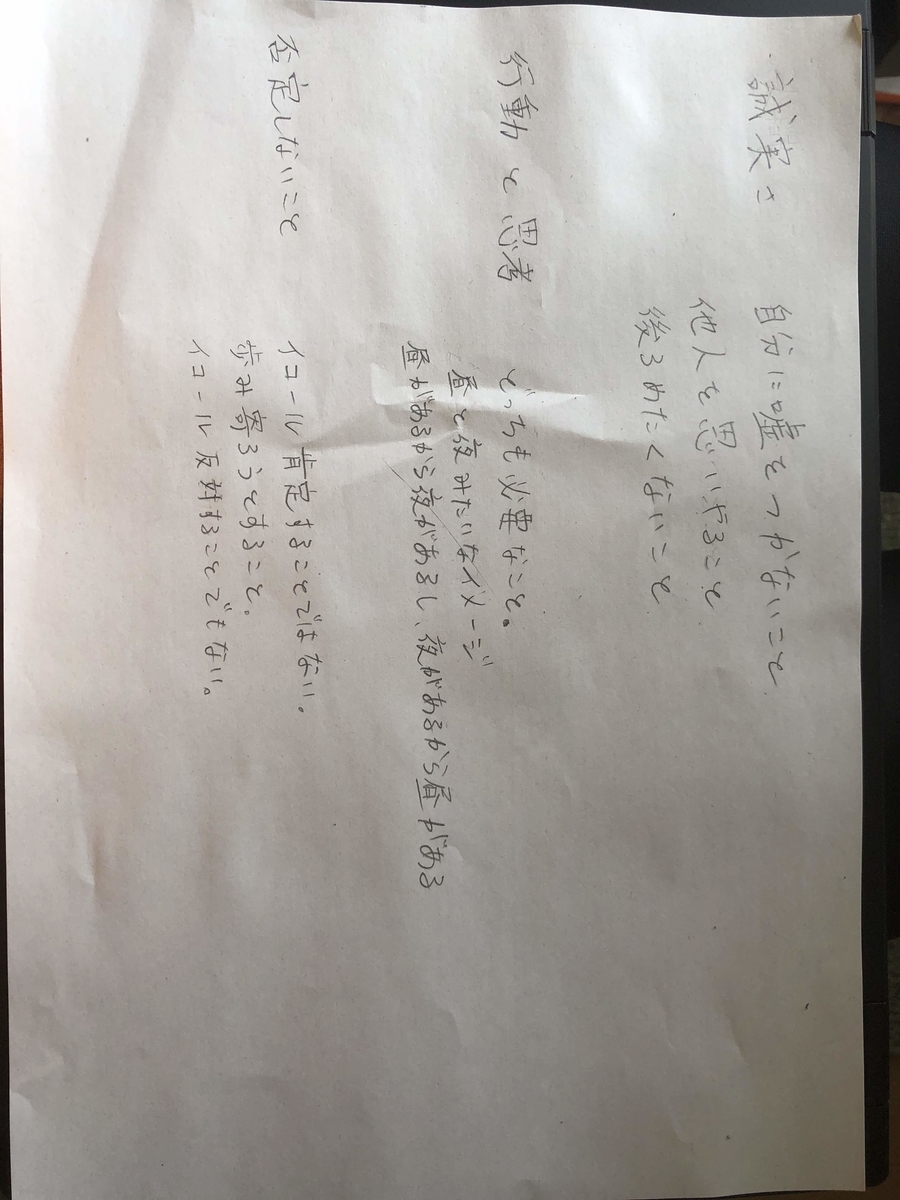 誠実さ
自分に嘘をつかないこと
他人を思いやること
後ろめたくないこと
行動と思考
どっちも必要なこと。
昼と夜みたいなイメージ
昼があるから夜があるし、夜があるから昼がある
否定しないこと
イコール肯定することではない。
歩み寄ろうとすること。
イコール反対することでもない。